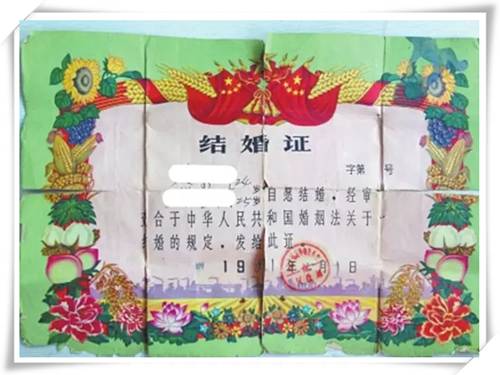 结婚证
字第 号
24岁
25岁自愿结婚，经审
合于中华人民共和国婚姻法关于
结婚的规定，发给此证。
19 1年 月 日